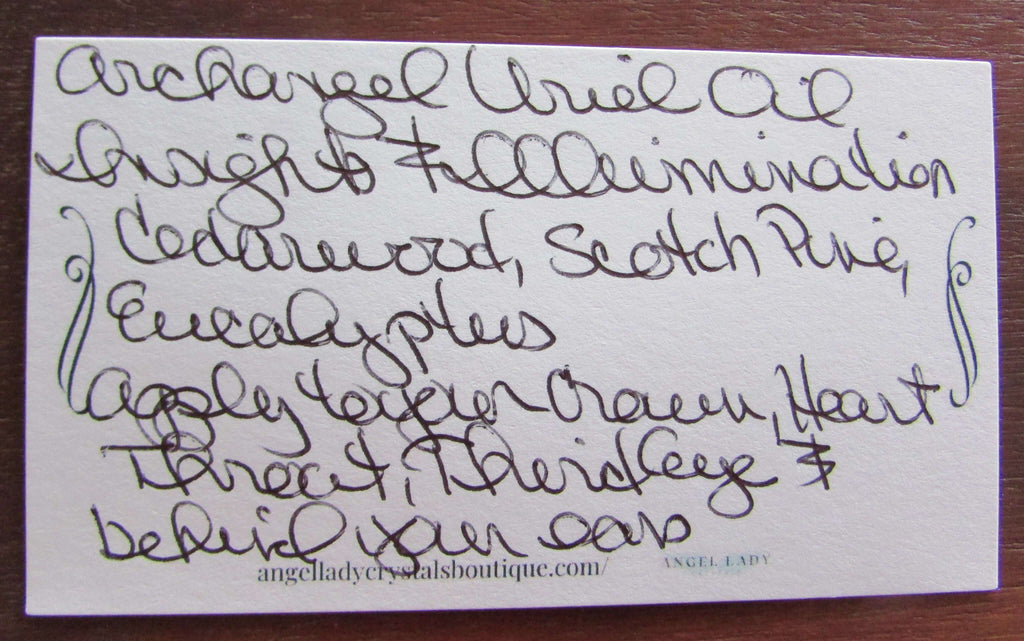 Archangel Uriel Oil
Insight & Illumination
Cedarwood, Scotch Pine,
Eucalyptus
Apply to your Crown, Heart
Throat, Third Eye &
behind your ears
angelladycrystalsboutique.com/
ANGEL LADY